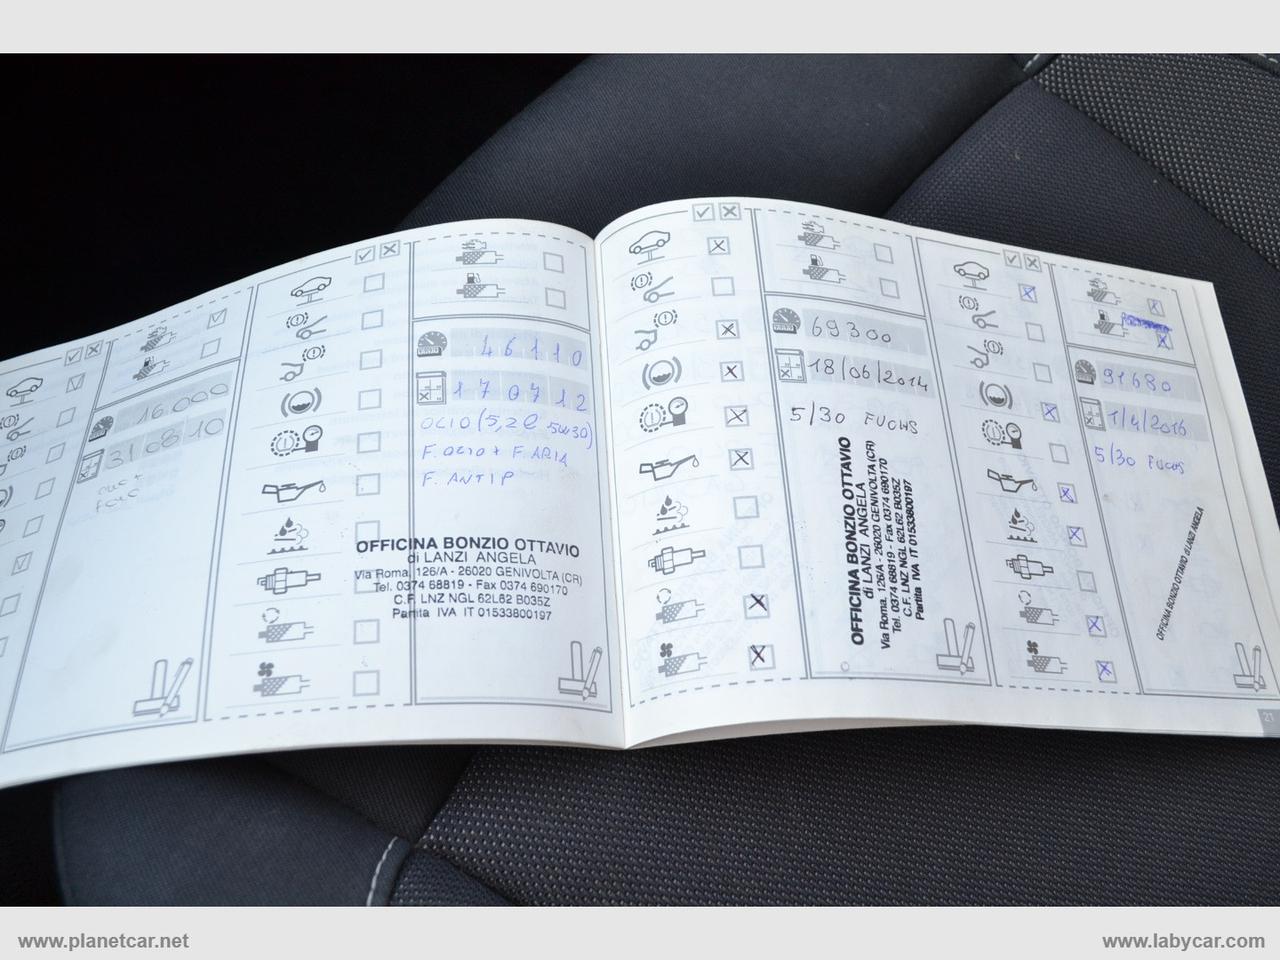 16.000
31 08 10
46110
170712
OLIO (5,2 l 5W30)
F. OLIO + F. ARIA
F. ANTIP
OFFICINA BONZIO OTTAVIO
di LANZI ANGELA
Via Roma, 126/A - 26020 GENIVOLTA (CR)
Tel. 0374 68819 - Fax 0374 690170
C.F. LNZ NGL 62L62 B035Z
Partita IVA IT 01533800197
69300
18/06/2014
5/30 FUCHS
OFFICINA BONZIO OTTAVIO
di LANZI ANGELA
Via Roma, 126/A - 26020 GENIVOLTA (CR)
Tel. 0374 68819 - Fax 0374 690170
C.F. LNZ NGL 62L62 B035Z
Partita IVA IT 01533800197
91680
1/4/2016
5/30 FUCHS
OFFICINA BONZIO OTTAVIO di LANZI ANGELA
21
www.planetcar.net
www.labycar.com